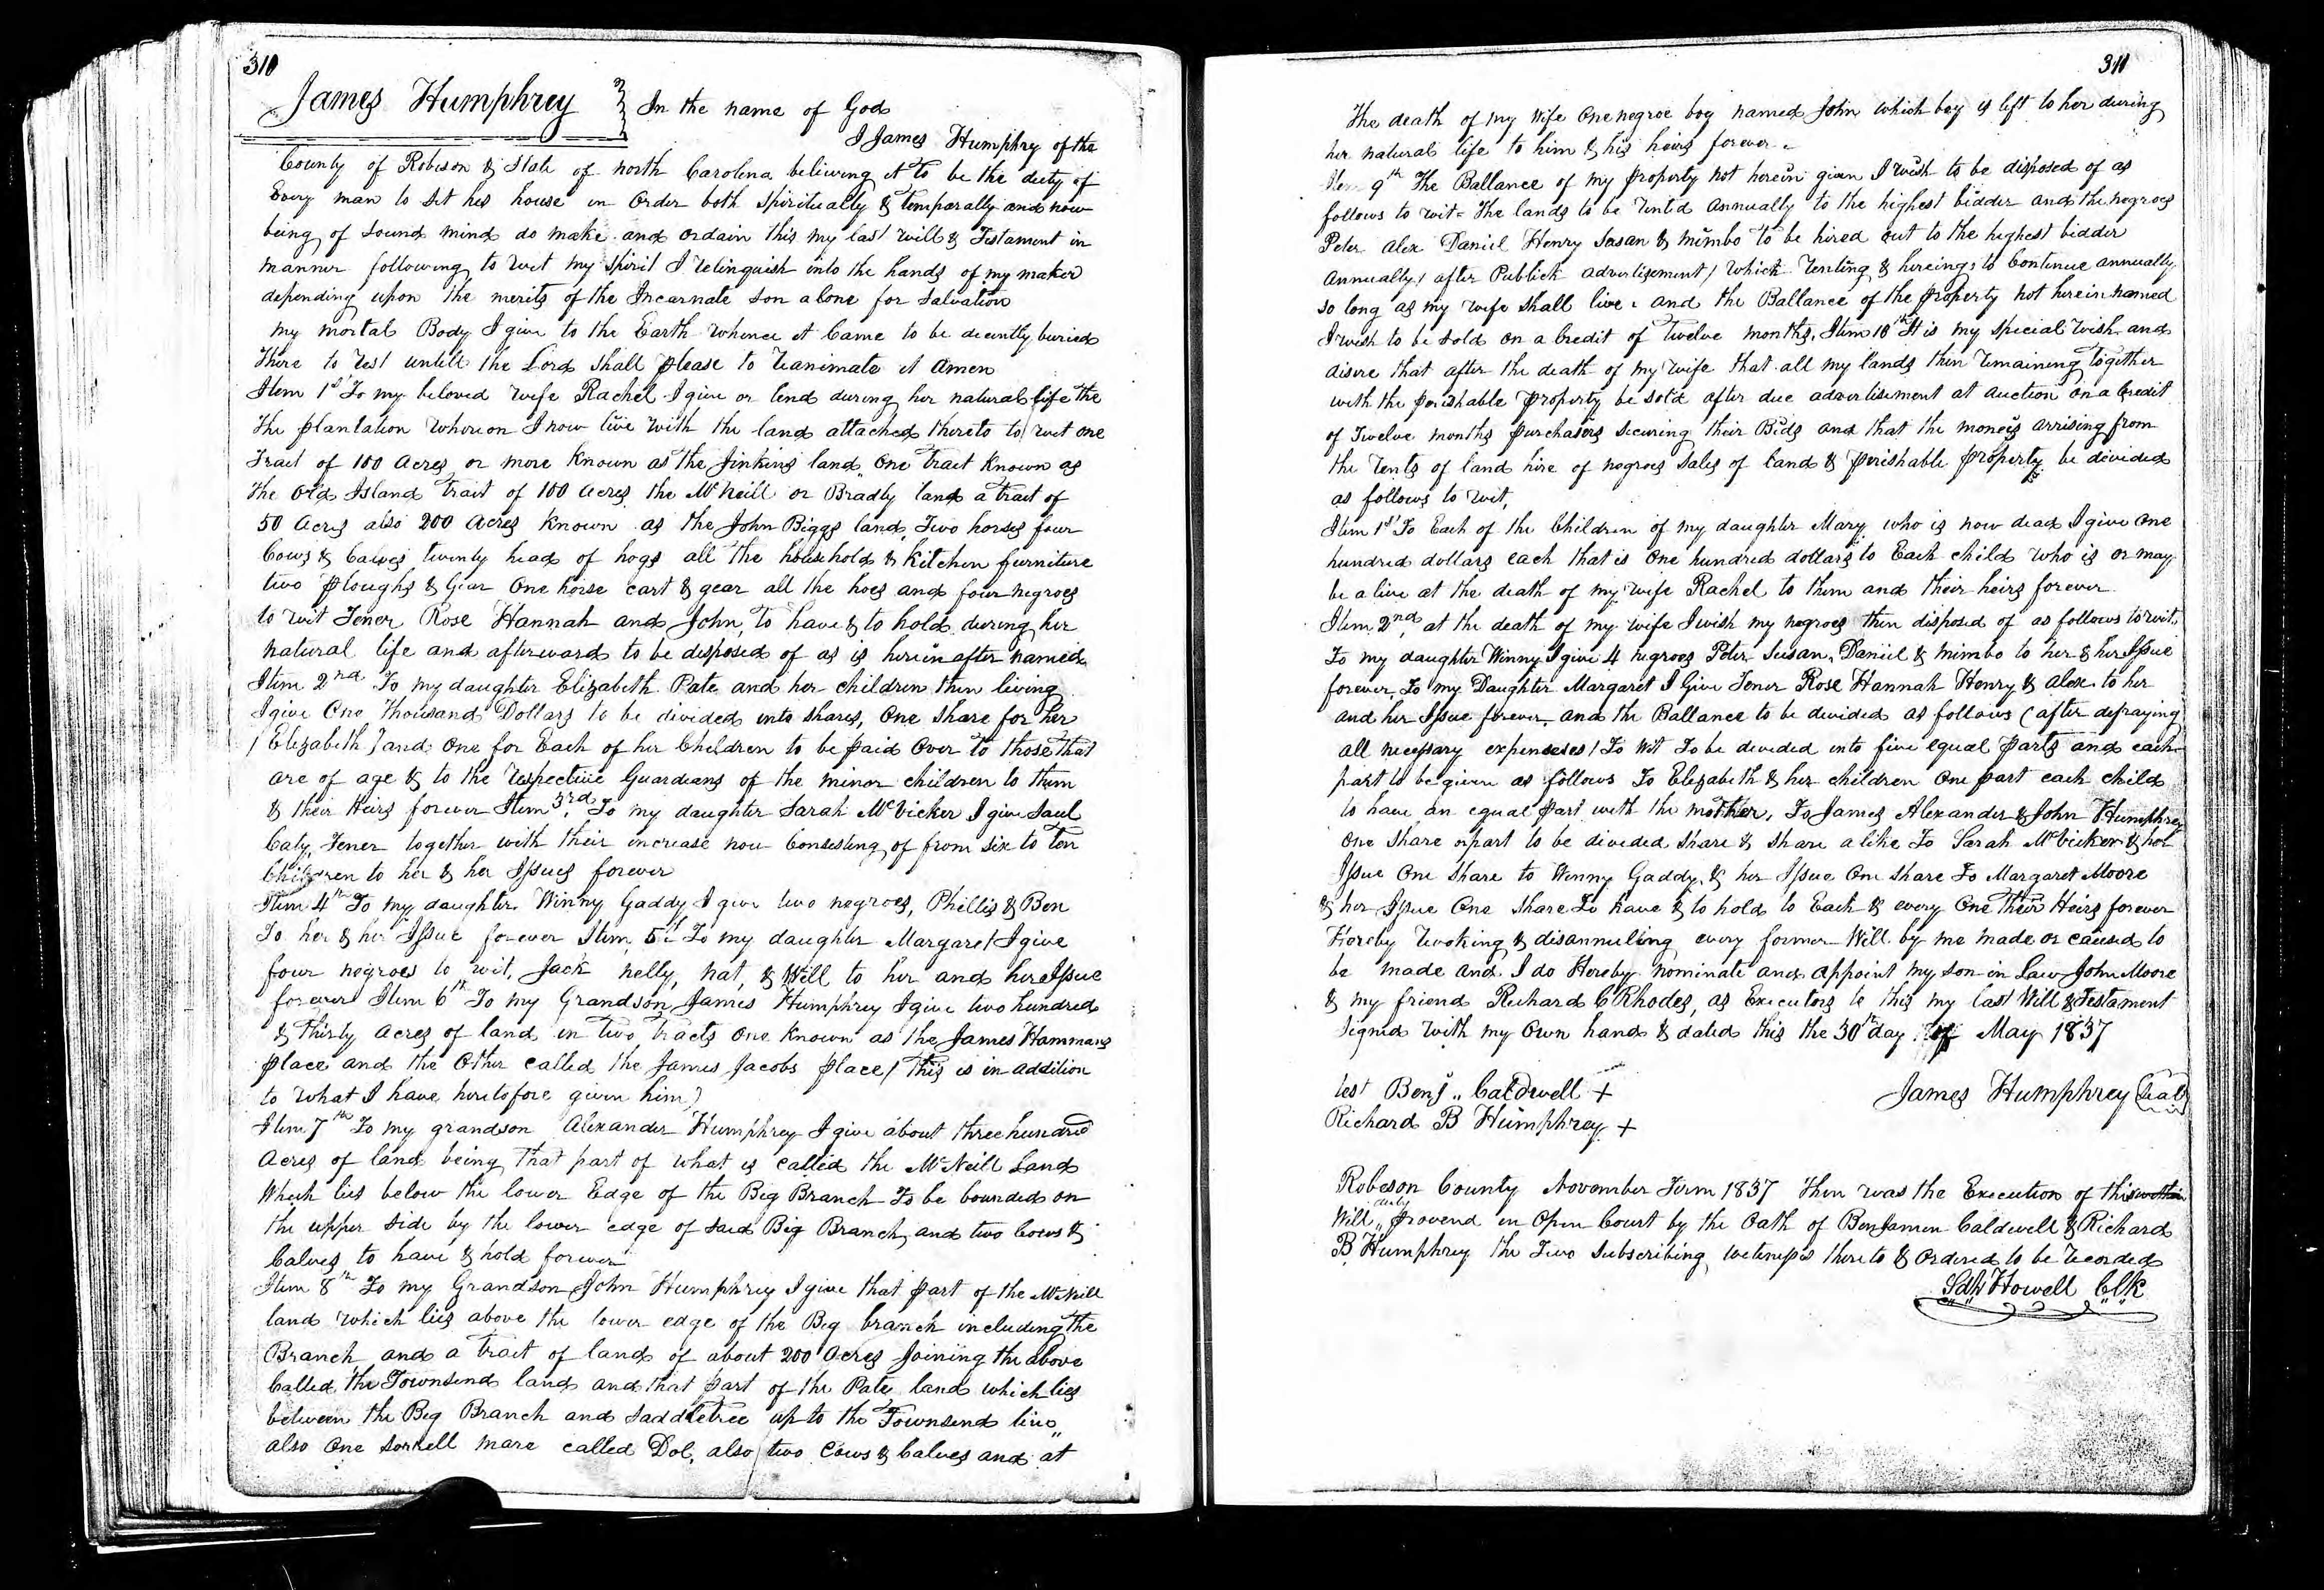 310
James Humphrey } In the name of God
I James Humphry of the
County of Robison & State of north Carolina believing it to be the duty of
Every man to set his house in Order both Spiritually & temporally and now
being of sound mind do make and ordain this my last will & Testament in
manner following to wit my Spirit I relinquish into the hands of my maker
depending upon the merits of the Incarnate son alone for salvation
my mortal Body I give to the Earth whence it Came to be decently buried
there to rest untill the Lord shall please to reanimate it Amen
Item 1st To my beloved wife Rachel I give or lend during her natural life the
the plantation whereon I now live with the land attached thereto to wit one
Tract of 100 acres or more Known as the Jinkins land One tract Known as
the Old Island tract of 100 acres the McNeill or Bradly land a tract of
50 Acres also 200 Acres Known as the John Biggs land, Two horses four
Cows & Calves twenty head of hogs all the household & Kitchen furniture
two ploughs & Gear One horse cart & gear all the hoes and four negroes
to wit Tener Rose Hannah and John, To have & to hold during her
natural life and afterwards to be disposed of as is herein after named
Item 2nd To my daughter Elizabeth Pate and her children then living
I give One Thousand Dollars to be divided into shares, One share for her
(Elizabeth) and One for Each of her Children to be paid Over to those that
are of age & to the respective Guardians of the minor children to them
& their Heirs forever Item 3rd, To my daughter Sarah McVicker I give Saul
Caty, Tener together with their increase now Consisting of from six to Ten
Children to her & her Issues forever
Item 4th To my daughter Winny Gaddy I give two negroes, Phillis & Ben
To her & her Issue forever Item 5th To my daughter Margaret I give
four negroes to wit, Jack nelly, nat, & Will to her and her Issue
forever Item 6th To my Grandson James Humphrey I give two hundred
& thirty acres of land in two tracts One Known as the James Hammans
place and the Other called the James Jacobs place (This is in addition
to what I have heretofore given him)
Item 7th To my grandson Alexander Humphrey I give about three hundred
Acres of land being that part of what is called the McNeill Land
Which lies below the lower Edge of the Big Branch To be bounded on
the upper side by the lower edge of said Big Branch, and two Cows &
Calves to have & hold forever
Item 8th To my Grandson John Humphrey I give that part of the McNeill
land which lies above the lower edge of the Big branch including the
Branch and a tract of land of about 200 Acres Joining the above
Called the Townsend land and that part of the Pate land which lies
between the Big Branch and Saddletree up to the Townsend line,,
also One Sorrell mare called Dol, also two Cows & Calves and at
311
The death of my Wife One negroe boy named John which boy is left to her during
her natural life to him & his heirs forever
Item 9th The Ballance of my property not herein given I wish to be disposed of as
follows to wit - The lands to be rented Annually to the highest bidder and the negroes
Peter Alex Daniel Henry Susan & mimbo to be hired out to the highest bidder
annually, after Publick advertisement / which renting & hireing to Continue annually
so long as my wife shall live and the Ballance of the property not herein named
I wish to be sold on a Credit of Twelve months, Item 10th It is my special wish and
disire that after the death of my wife that all my lands then remaining together
with the perishable property be sold after due advertisement at Auction on a Credit
of Twelve months purchasers securing their Bids and that the moneys arrising from
the rents of land hire of negroes sales of land & perishable property be divided
as follows to wit,
Item 1st To Each of the Children of my daughter Mary who is now dead I give One
hundred dollars each that is One hundred dollars to Each child who is or may
be alive at the death of my wife Rachel to them and their heirs forever
Item 2nd, at the death of my wife I wish my negroes then disposed of as follows to wit,
To my daughter Winny I give 4 negroes Peter Susan, Daniel & mimbo to her & her Issue
forever, To my Daughter Margaret I Give Tener Rose Hannah Henry & Alex to her
and her Issue forever, and the Ballance to be divided as follows (after defraying
all necessary expenseses) To Wit To be divided into five equal parts and each
part to be given as follows To Elizabeth & her children One part each child
to have an equal part with the mother, To James Alexander & John Humphrey
One share or part to be divided share & share alike To Sarah McVicker & her
Issue One share to Winny Gaddy & her Issue One share To Margaret Moore
& her Issue One share To have & to hold to Each & every One Their Heirs forever
Hereby revoking & disannuling every former Will by me made or caused to
be made and I do Hereby nominate and appoint my son in Law John Moore
& my friend Richard C Rhodes, as Executors to this my last Will & Testament
Signed with my Own hand & dated this the 30th day of May 1837
test Benj,, Caldwell +
James Humphrey (Seal)
Richard B Humphrey +
Robeson County November Term 1837 Then was the Execution of this within
Will duly provend in Open Court by the Oath of Benjamin Caldwell & Richard
B Humphrey the Two Subscribing witnesses thereto & Ordered to be recorded
Howell Clk